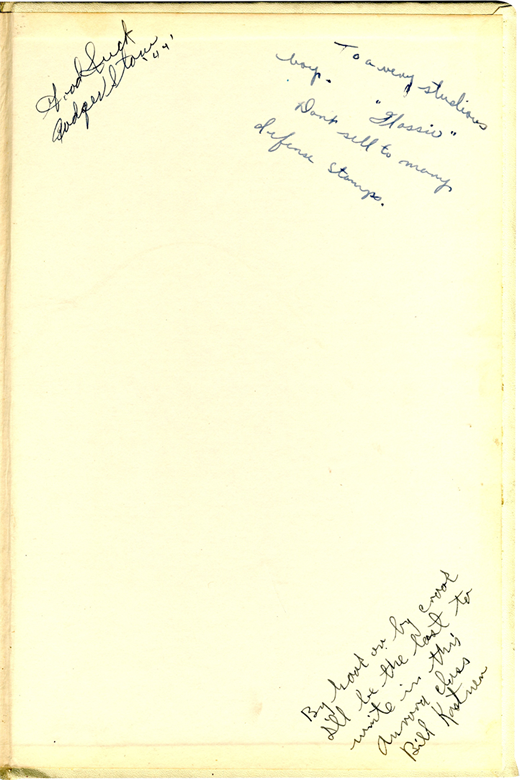 Good Luck
Stone
"44"
To a very studious
boy.
"Flossie"
Dont sell to many
defense stamps.
By hook or by crook
I'll be the last to
write in this
annual class
Bill